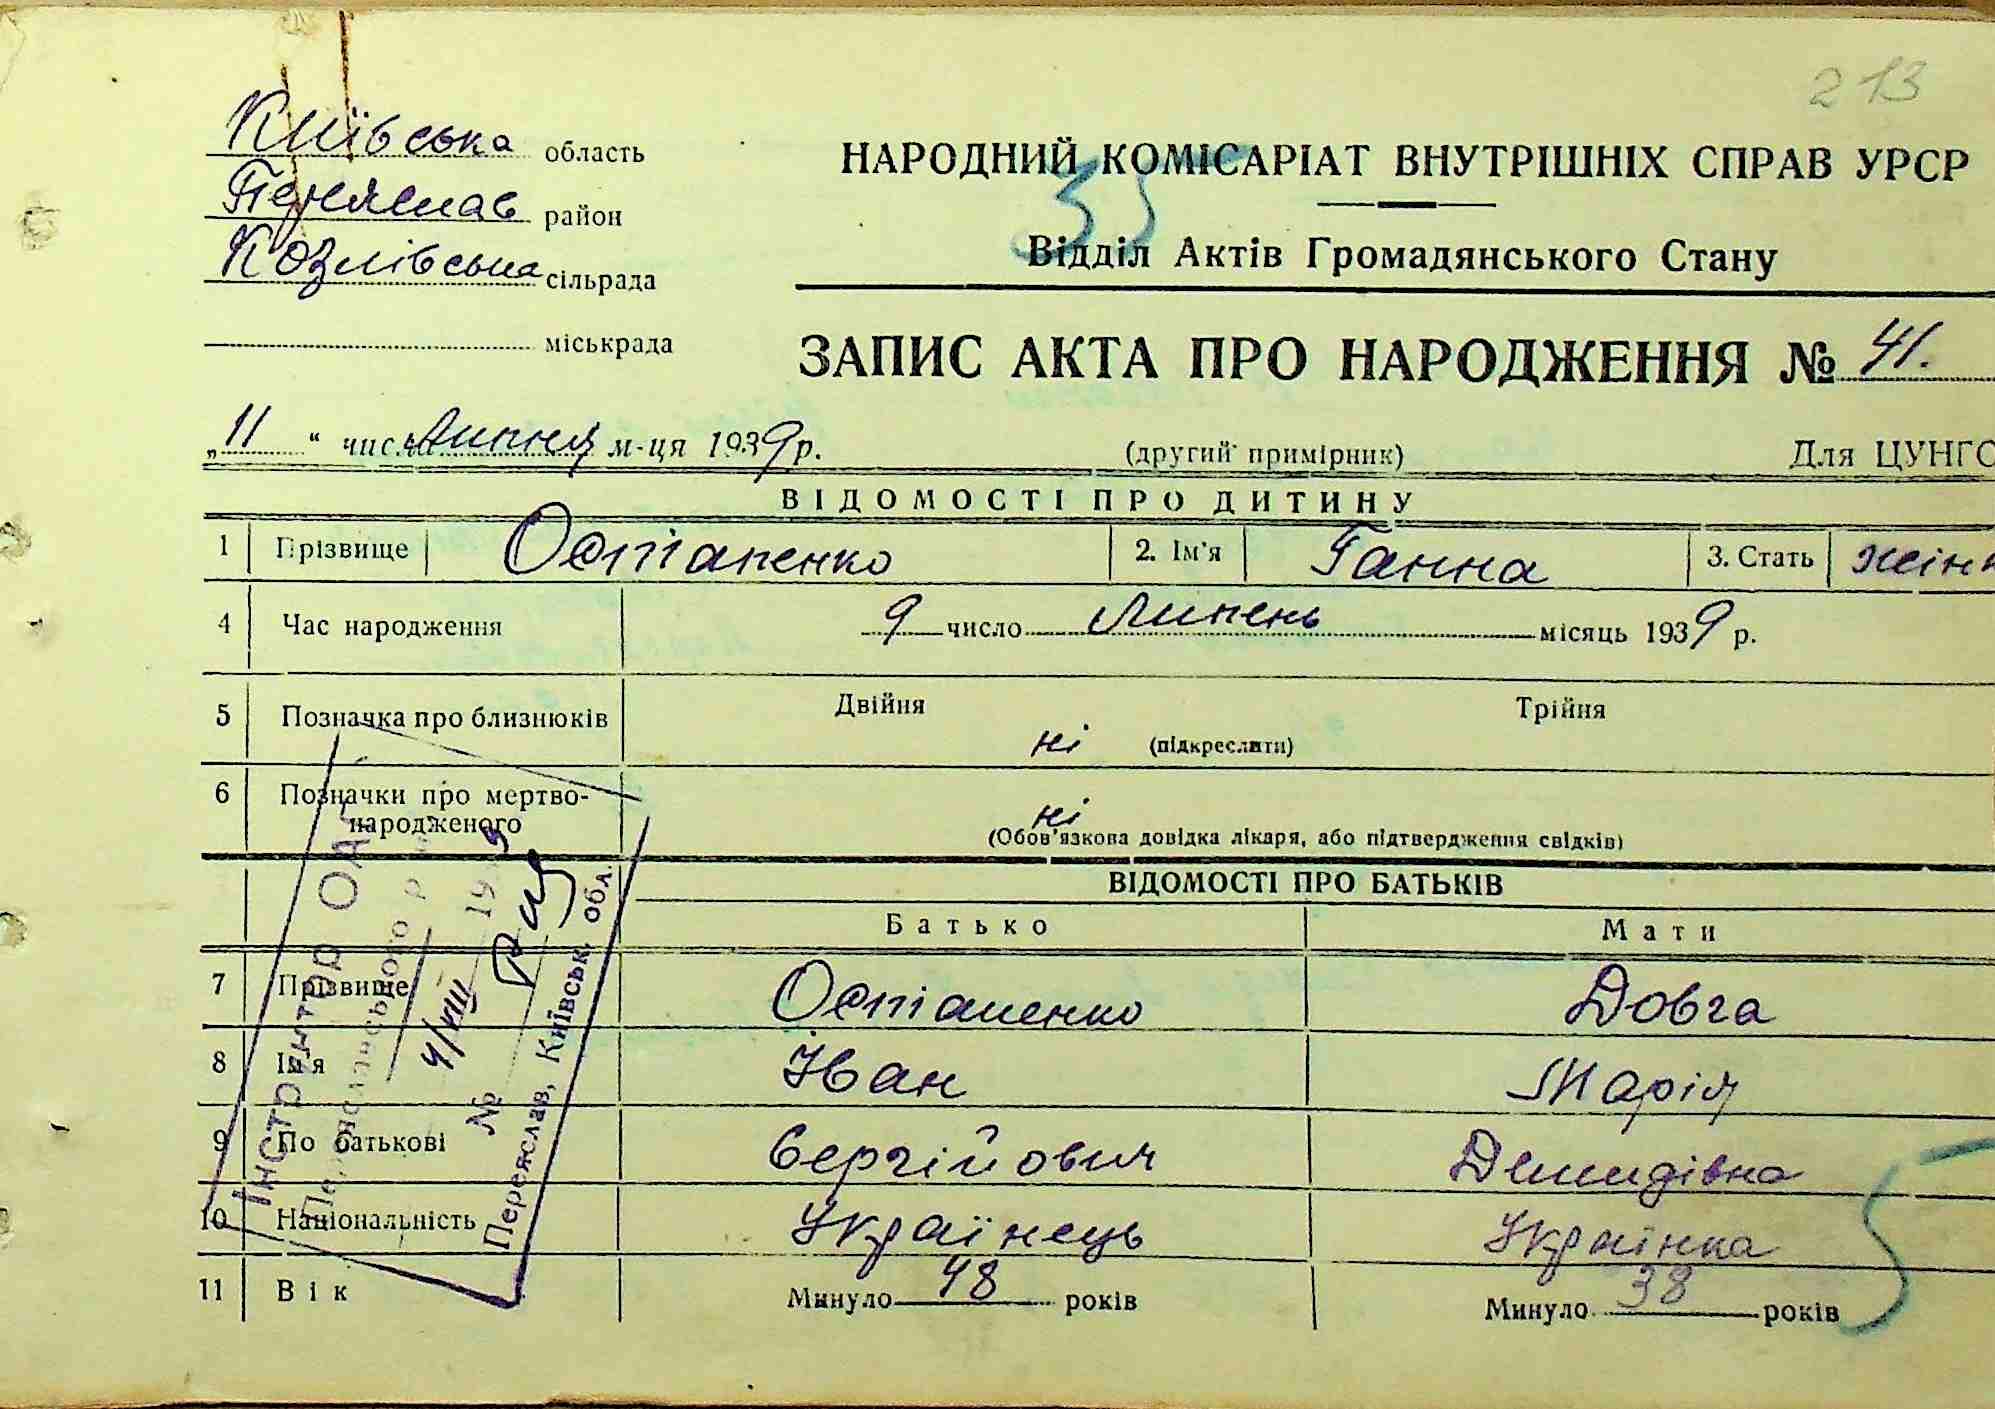 213
Київська область
Переяслав район
Козлівська сільрада
міськрада
НАРОДНИЙ КОМІСАРІАТ ВНУТРІШНІХ СПРАВ УРСР
35
Відділ Актів Громадянського Стану
ЗАПИС АКТА ПРО НАРОДЖЕННЯ № 41.
„11" числа липня м-ця 1939 р.
(другий примірник) Для ЦУНГО
ВІДОМОСТІ ПРО ДИТИНУ
1 Прізвище Остапенко 2. Ім'я Ганна 3. Стать жінк
4 Час народження 9 число Липень місяць 1939 р.
5 Позначка про близнюків Двійня Трійня
ні (підкреслити)
6 Позначки про мертво-
народженого ні
(Обов'язкова довідка лікаря, або підтвердження свідків)
ВІДОМОСТІ ПРО БАТЬКІВ
Батько Мати
7 Прізвище Остапенко Довга
8 Ім'я Іван Марія
9 По батькові Сергійович Демидівна
10 Національність Українець Українка
11 Вік Минуло 48 років Минуло 38 років
5
Інструктор ОАГ
Переяславського р
4/VIII 1939
№
Переяслав, Київськ. обл.